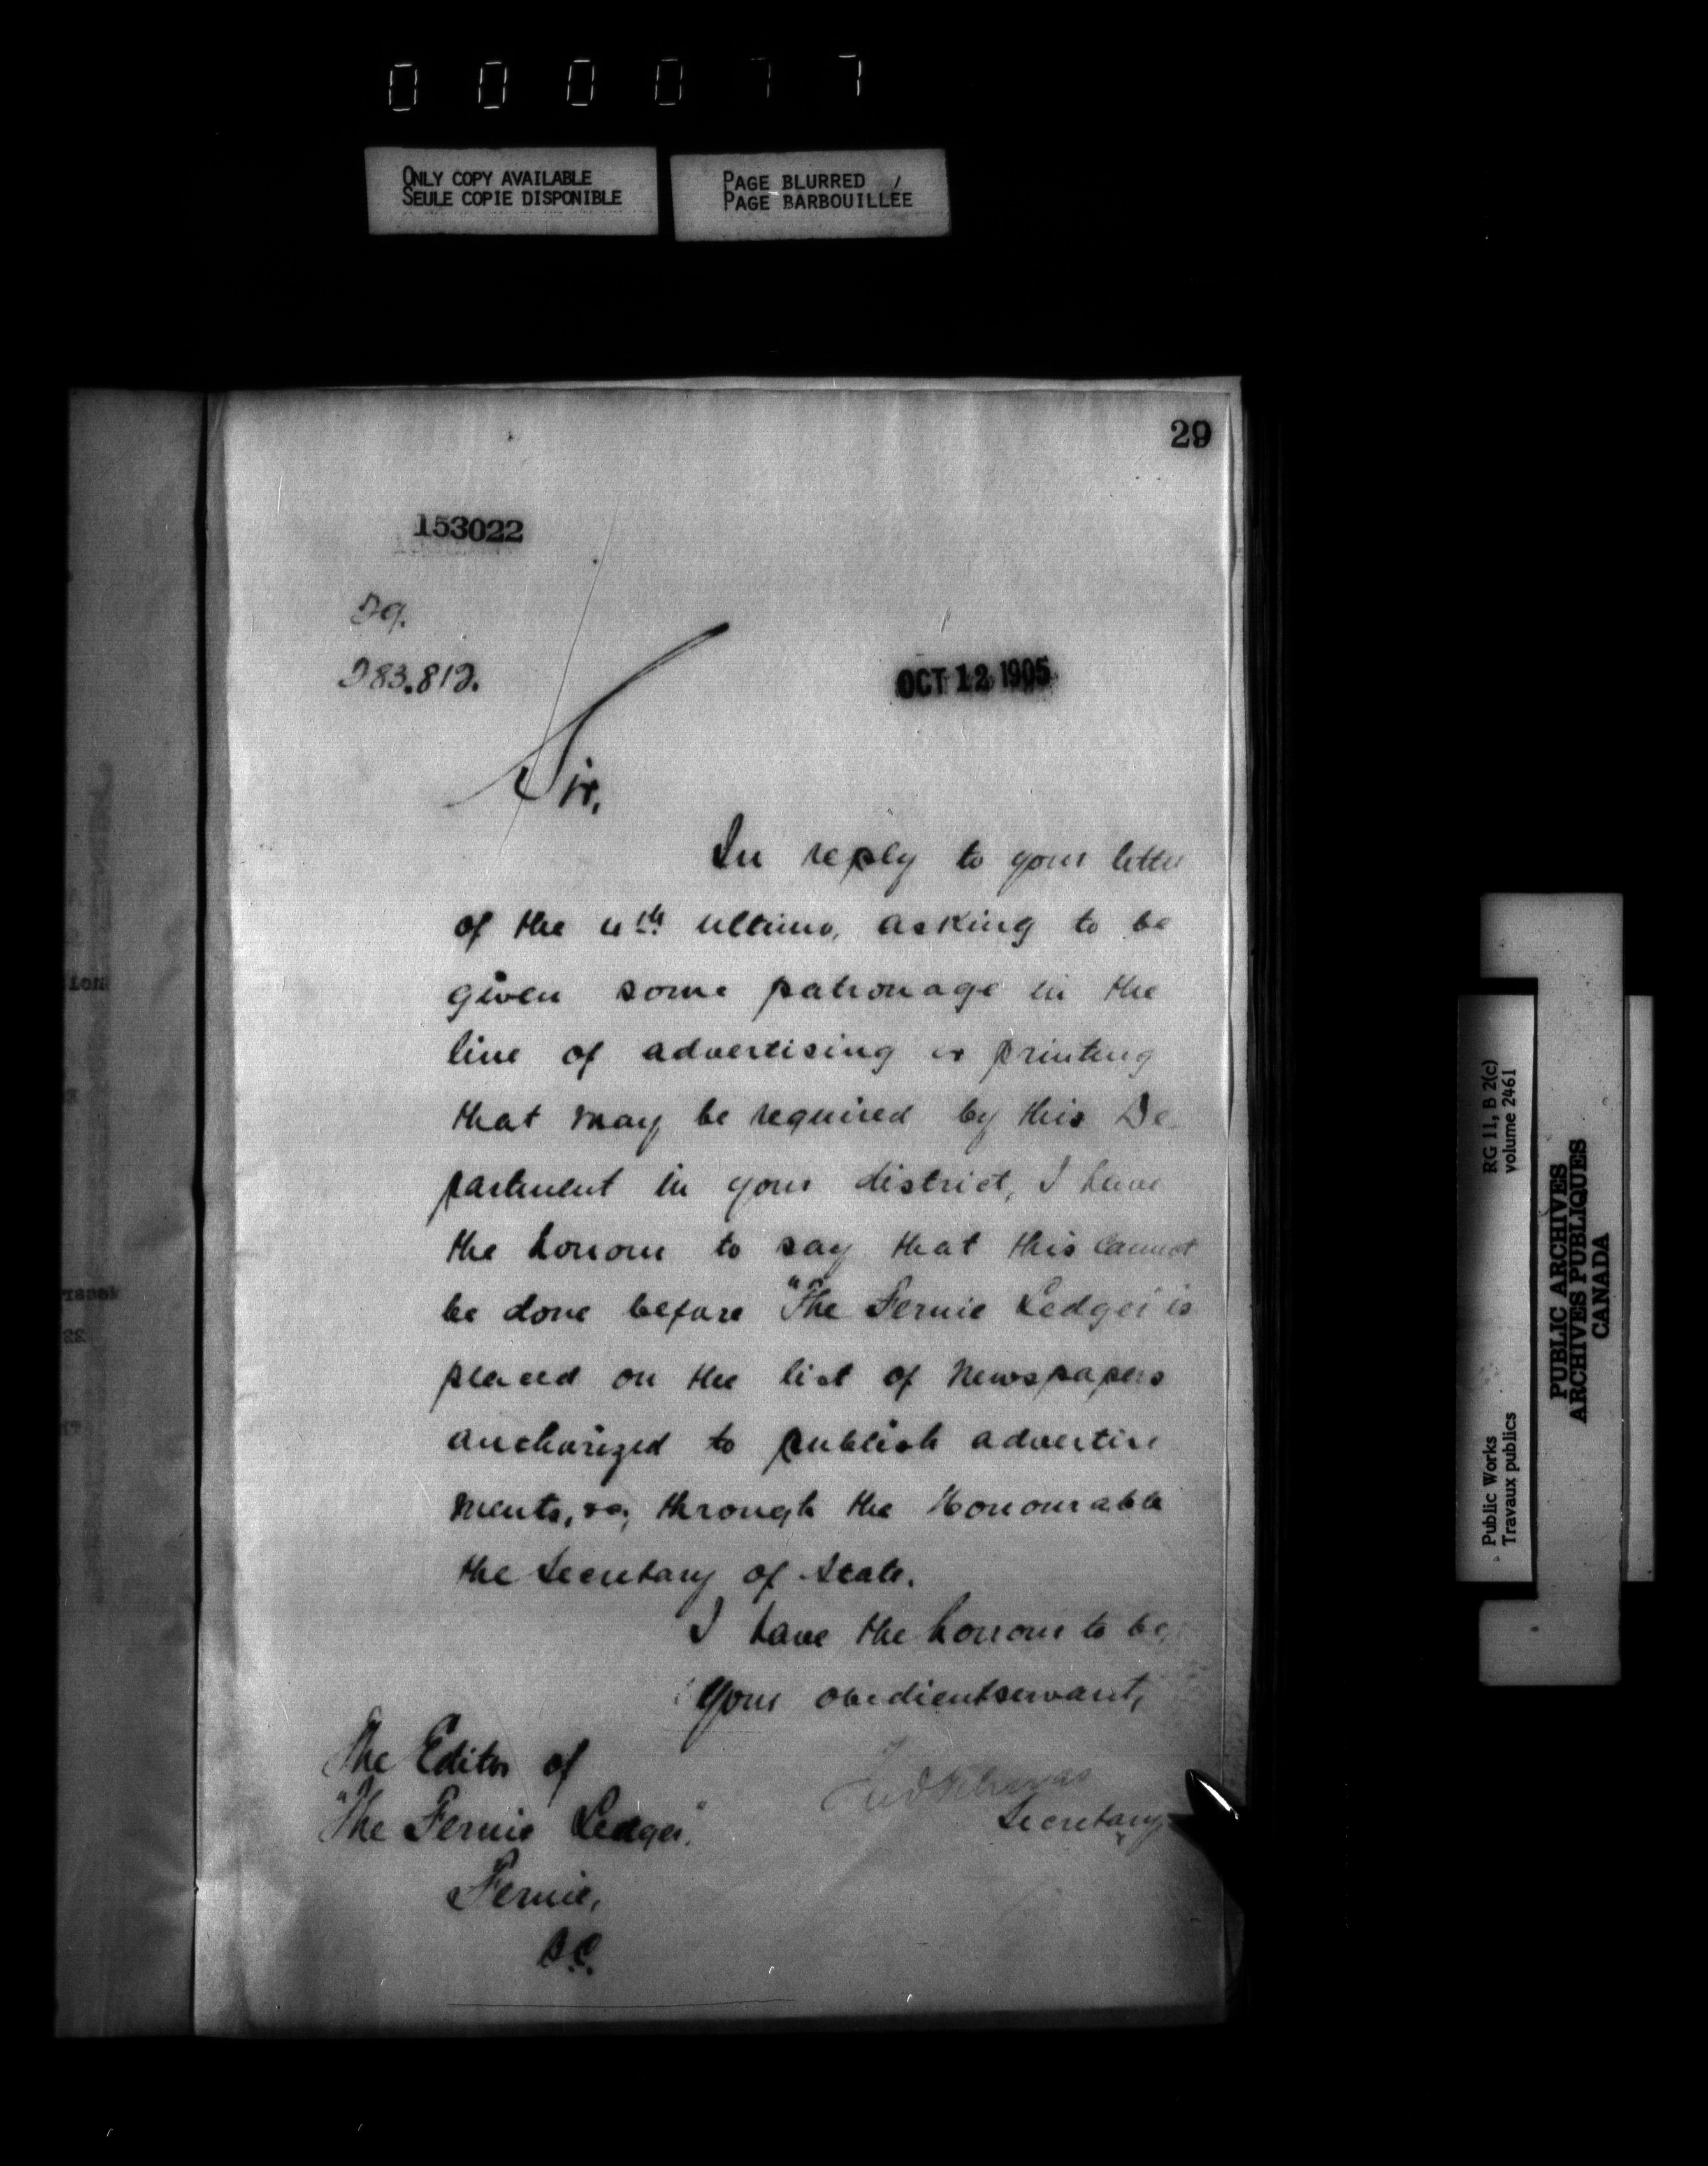 000077
ONLY COPY AVAILABLE
SEULE COPIE DISPONIBLE
PAGE BLURRED
PAGE BARBOUILLÉE
29
153022
283.812.
OCT 12 1905
Sir,
In reply to your letter
of the ultimo, asking to be
given some patronage in the
line of advertising or printing
that may be required by this De
partment in your district, I have
the honour to say that this cannot
be done before "The Fernie Ledger" is
placed on the list of Newspapers
authorized to publish advertise
ments, &c; through the Honourable
the Secretary of State.
I have the honour to be,
Your obedient servant,
Secretary
The Editor of
"The Fernie Ledger."
Fernie,
B.C.
RG 11, B 2(c)
volume 2461
Public Works
Travaux publics
PUBLIC ARCHIVES
ARCHIVES PUBLIQUES
CANADA